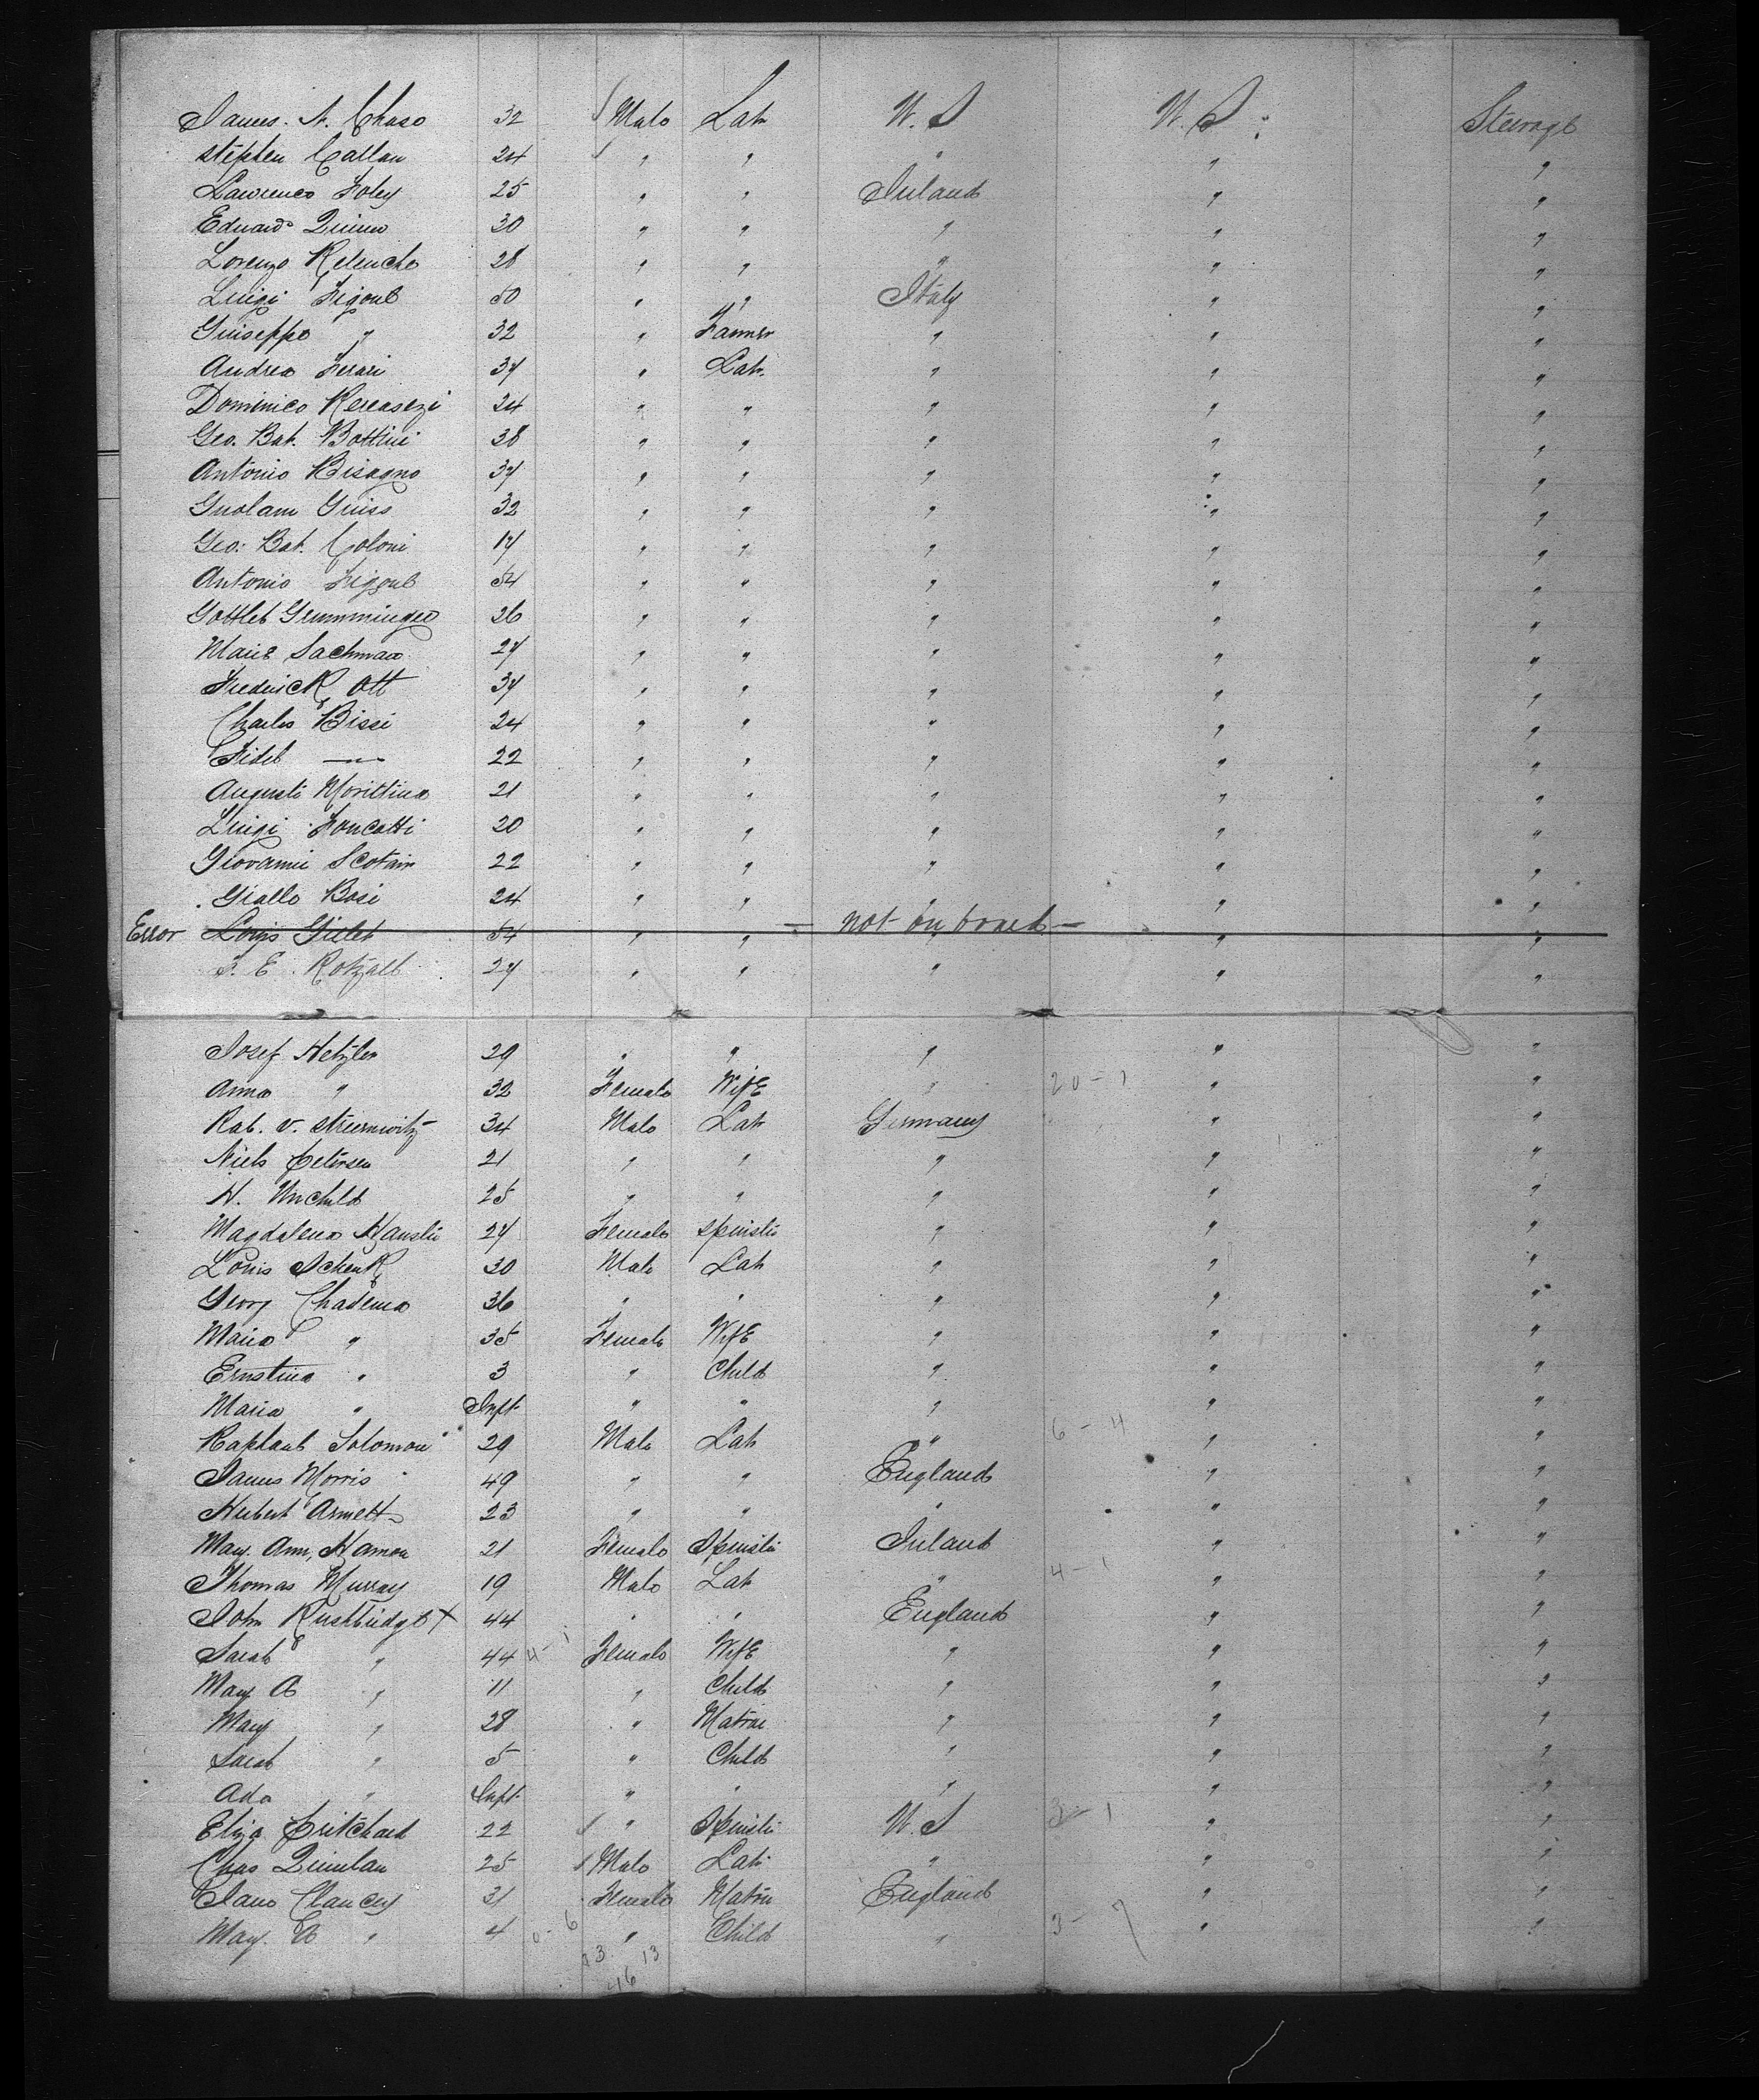 James. A. Chase 32 Male Lab U.S U.S Steerage
Stephen Callan 24 " " " " "
Lawrence Foley 25 " " Ireland " "
Edward Quinn 30 " " " " "
Lorenzo 28 " " " " "
Luigi Figone 50 " " Italy " "
Guiseppe " 32 " Farmer " " "
Andrea Ferari 34 " Lab. " " "
Dominico 24 " " " " "
Geo. Bat. Bottini 38 " " " " "
Antonio Bisagno 34 " " " " "
32 " " " " "
Geo. Bat. Coloni 14 " " " " "
Antonio Figone 54 " " " " "
Gottleb 26 " " " " "
Sachmaa 24 " " " " "
Frederick Ott 34 " " " " "
Charles Bissi 24 " " " " "
Fidel — " — 22 " " " " "
Augusti Morittina 21 " " " " "
Luigi Foncatti 20 " " " " "
Giovanni Scotain 22 " " " " "
Giallo Bosi 24 " " " " "
Error Louis Gillet 54 " " — not on board — " "
E. 24 " " " " "
Josef Hetzler 29 " " " " "
Anna " 32 Female Wife " 20 - 1 " "
Rab. v. Streernwitz 34 Male Lab Germany " "
Niels Petersen 21 " " " " "
H. Unchild 25 " " " " "
Magdalena 24 Female Spinster " " "
Louis Schenk 30 Male Lab " " "
Georg Chadema 36 " " " " "
Maria " 35 Female Wife " " "
Ernstina " 3 " Child " " "
Maria " Inft " " " " "
Raphael Solomon 29 Male Lab " 6 - 4 " "
James Morris 49 " " England " "
Hubert Arnett 23 " " " " "
Mary Ann 21 Female Spinster Ireland " "
Thomas Murray 19 Male Lab " 4 - 1 " "
John Rushbridge X 44 " " England " "
Sarah " 44 4 - 1 Female Wife " " "
Mary A " 11 " Child " " "
Mary " 28 " Matron " " "
Sarah " 5 " Child " " "
Ada " Inft " " " " "
Eliza Pritchard 22 " Spinster U.S 3 - 1 " "
Chas Quinlan 25 Male Lab " " "
Jane Clancy 31 Female Matron England " "
Mary. A " 4 0 - 6 " Child " 3 - 7 " "
33 13
46